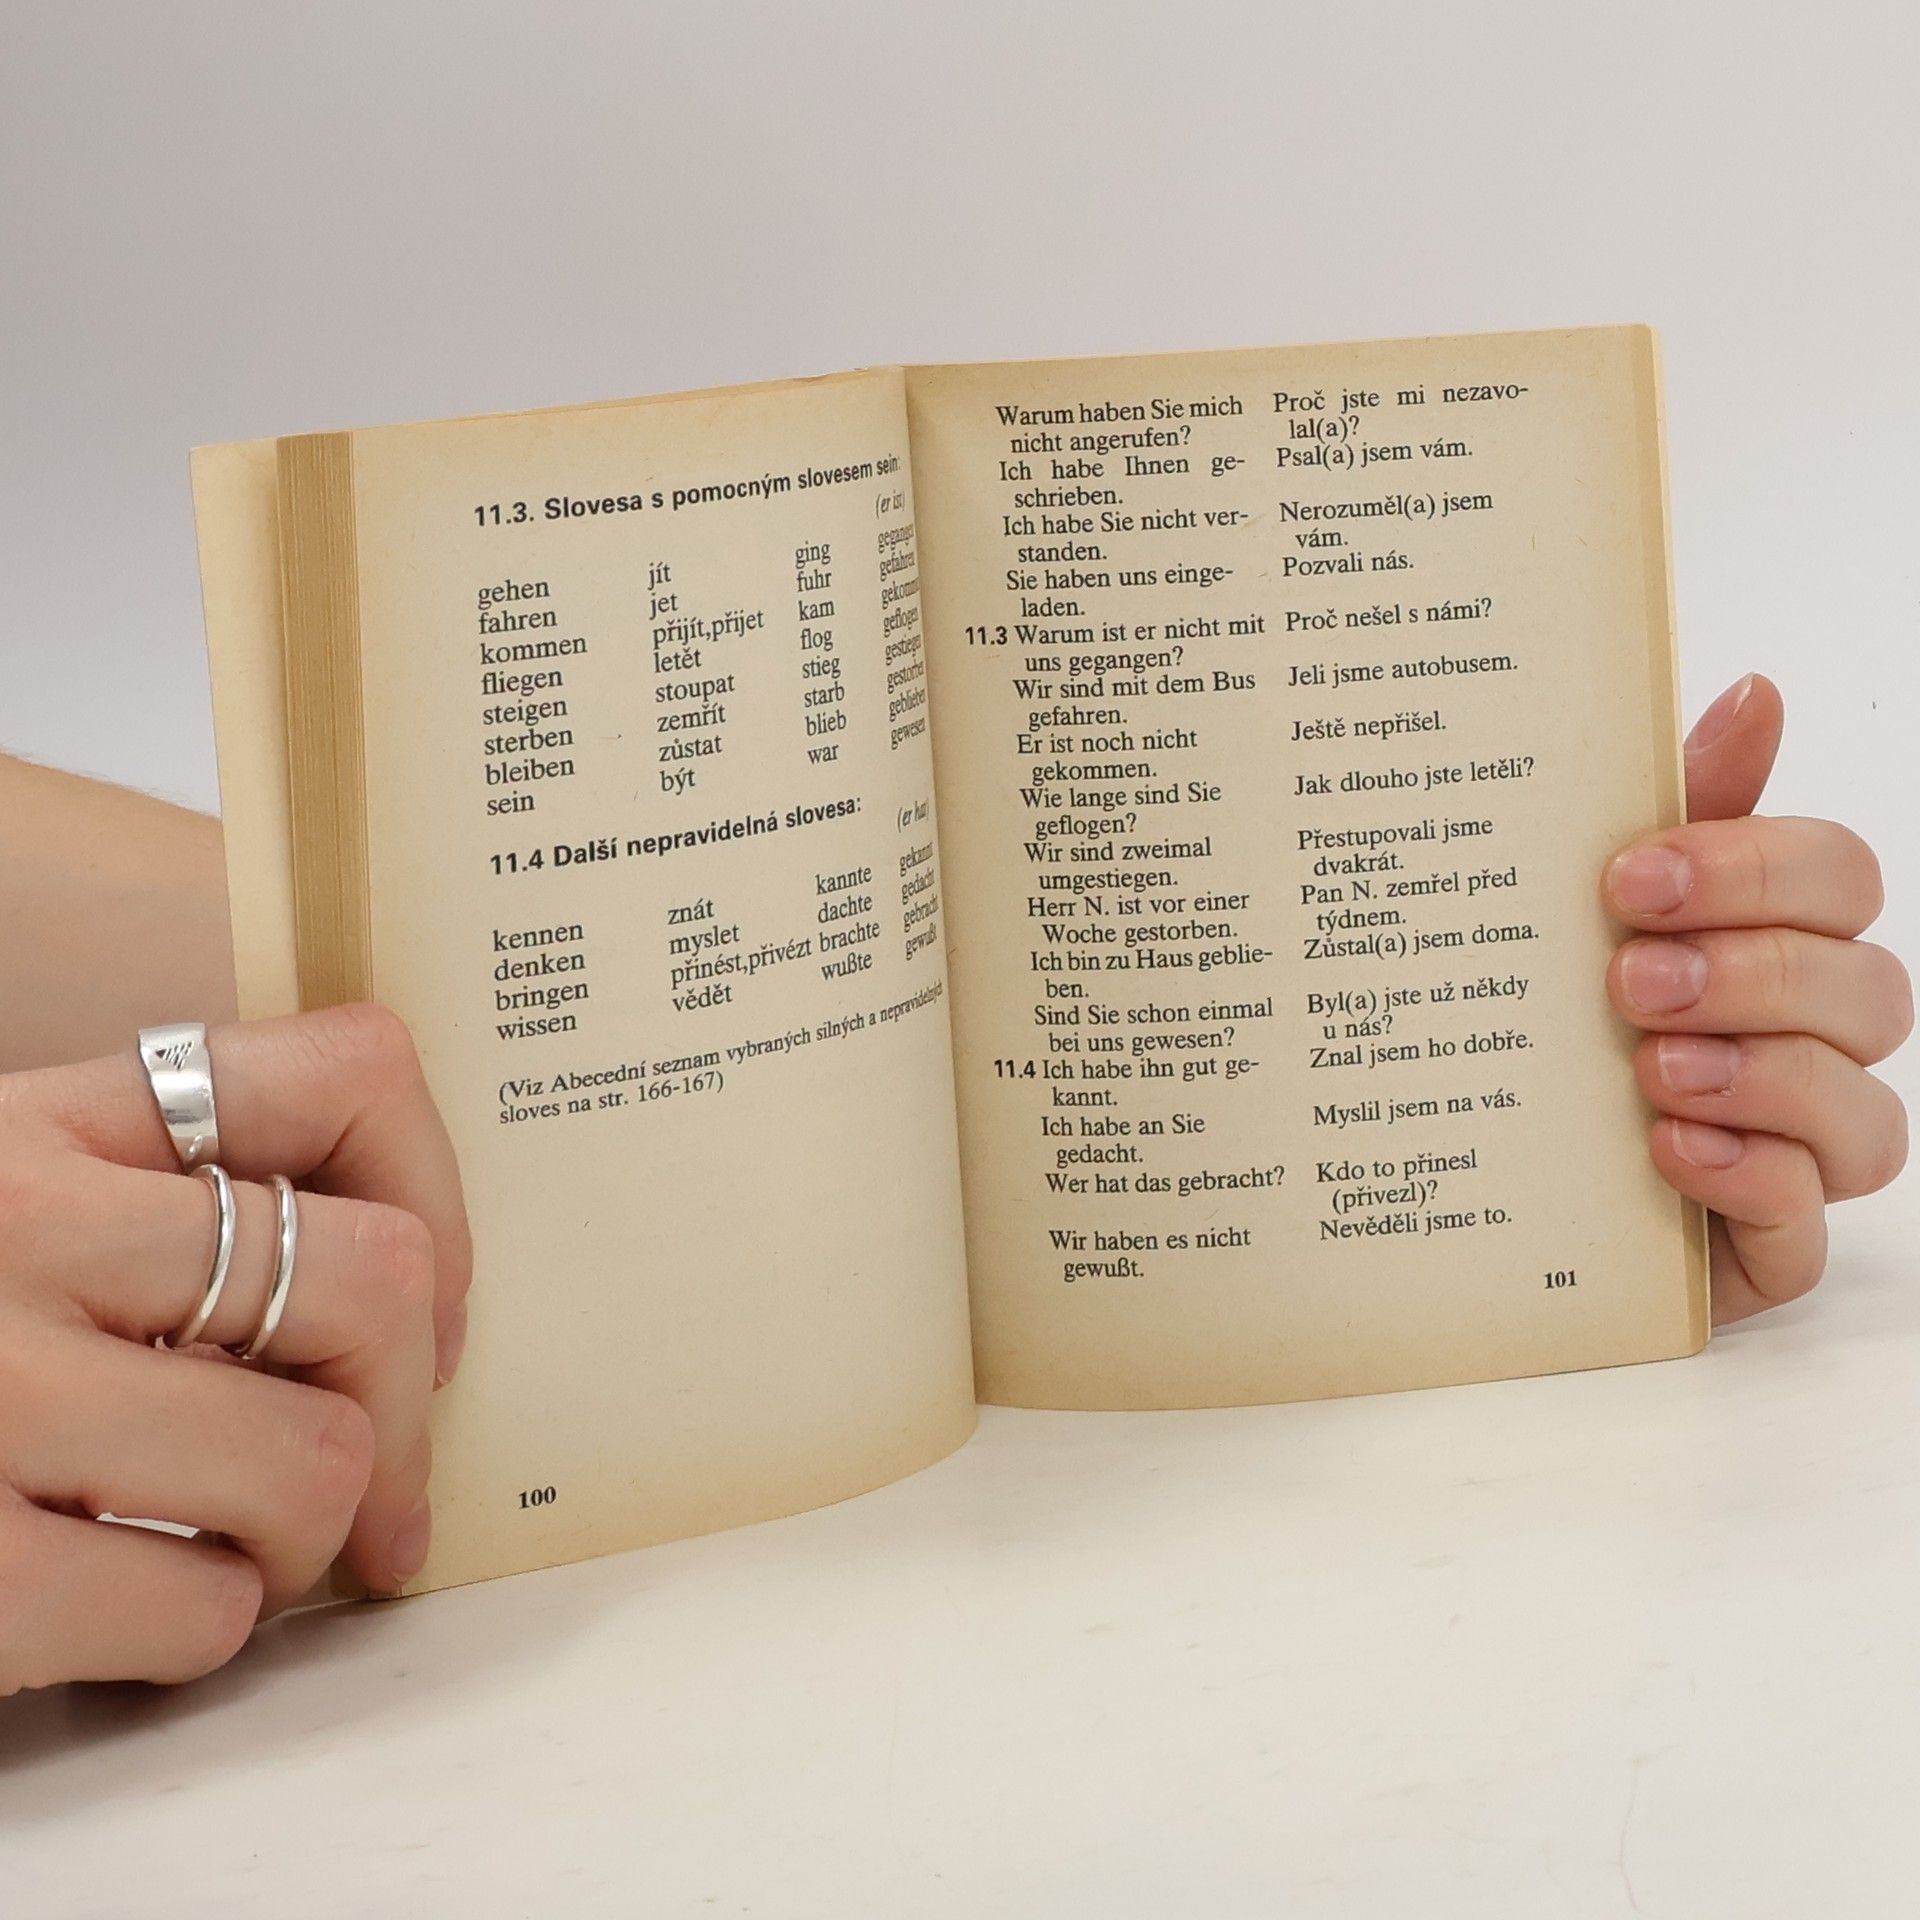 11.3. Slovesa s pomocným slovesem sein:
(er ist)
gehen jít ging gegangen
fahren jet fuhr gefahren
kommen přijít,přijet kam
fliegen letět flog geflogen
steigen stoupat stieg gestiegen
sterben zemřít starb gestorben
bleiben zůstat blieb geblieben
sein být war gewesen
11.4 Další nepravidelná slovesa:
(er hat)
kennen znát kannte gekannt
denken myslet dachte gedacht
bringen přinést,přivézt brachte gebracht
wissen vědět wußte gewußt
(Viz Abecední seznam vybraných silných a nepravidelných
sloves na str. 166-167)
100
Warum haben Sie mich Proč jste mi nezavo-
nicht angerufen? lal(a)?
Ich habe Ihnen ge- Psal(a) jsem vám.
schrieben.
Ich habe Sie nicht ver- Nerozuměl(a) jsem
standen. vám.
Sie haben uns einge- Pozvali nás.
laden.
11.3 Warum ist er nicht mit Proč nešel s námi?
uns gegangen?
Wir sind mit dem Bus Jeli jsme autobusem.
gefahren.
Er ist noch nicht Ještě nepřišel.
gekommen.
Wie lange sind Sie Jak dlouho jste letěli?
geflogen?
Wir sind zweimal Přestupovali jsme
umgestiegen. dvakrát.
Herr N. ist vor einer Pan N. zemřel před
Woche gestorben. týdnem.
Ich bin zu Haus geblie- Zůstal(a) jsem doma.
ben.
Sind Sie schon einmal Byl(a) jste už někdy
bei uns gewesen? u nás?
11.4 Ich habe ihn gut ge- Znal jsem ho dobře.
kannt.
Ich habe an Sie Myslil jsem na vás.
gedacht.
Wer hat das gebracht? Kdo to přinesl
(přivezl)?
Wir haben es nicht Nevěděli jsme to.
gewußt.
101